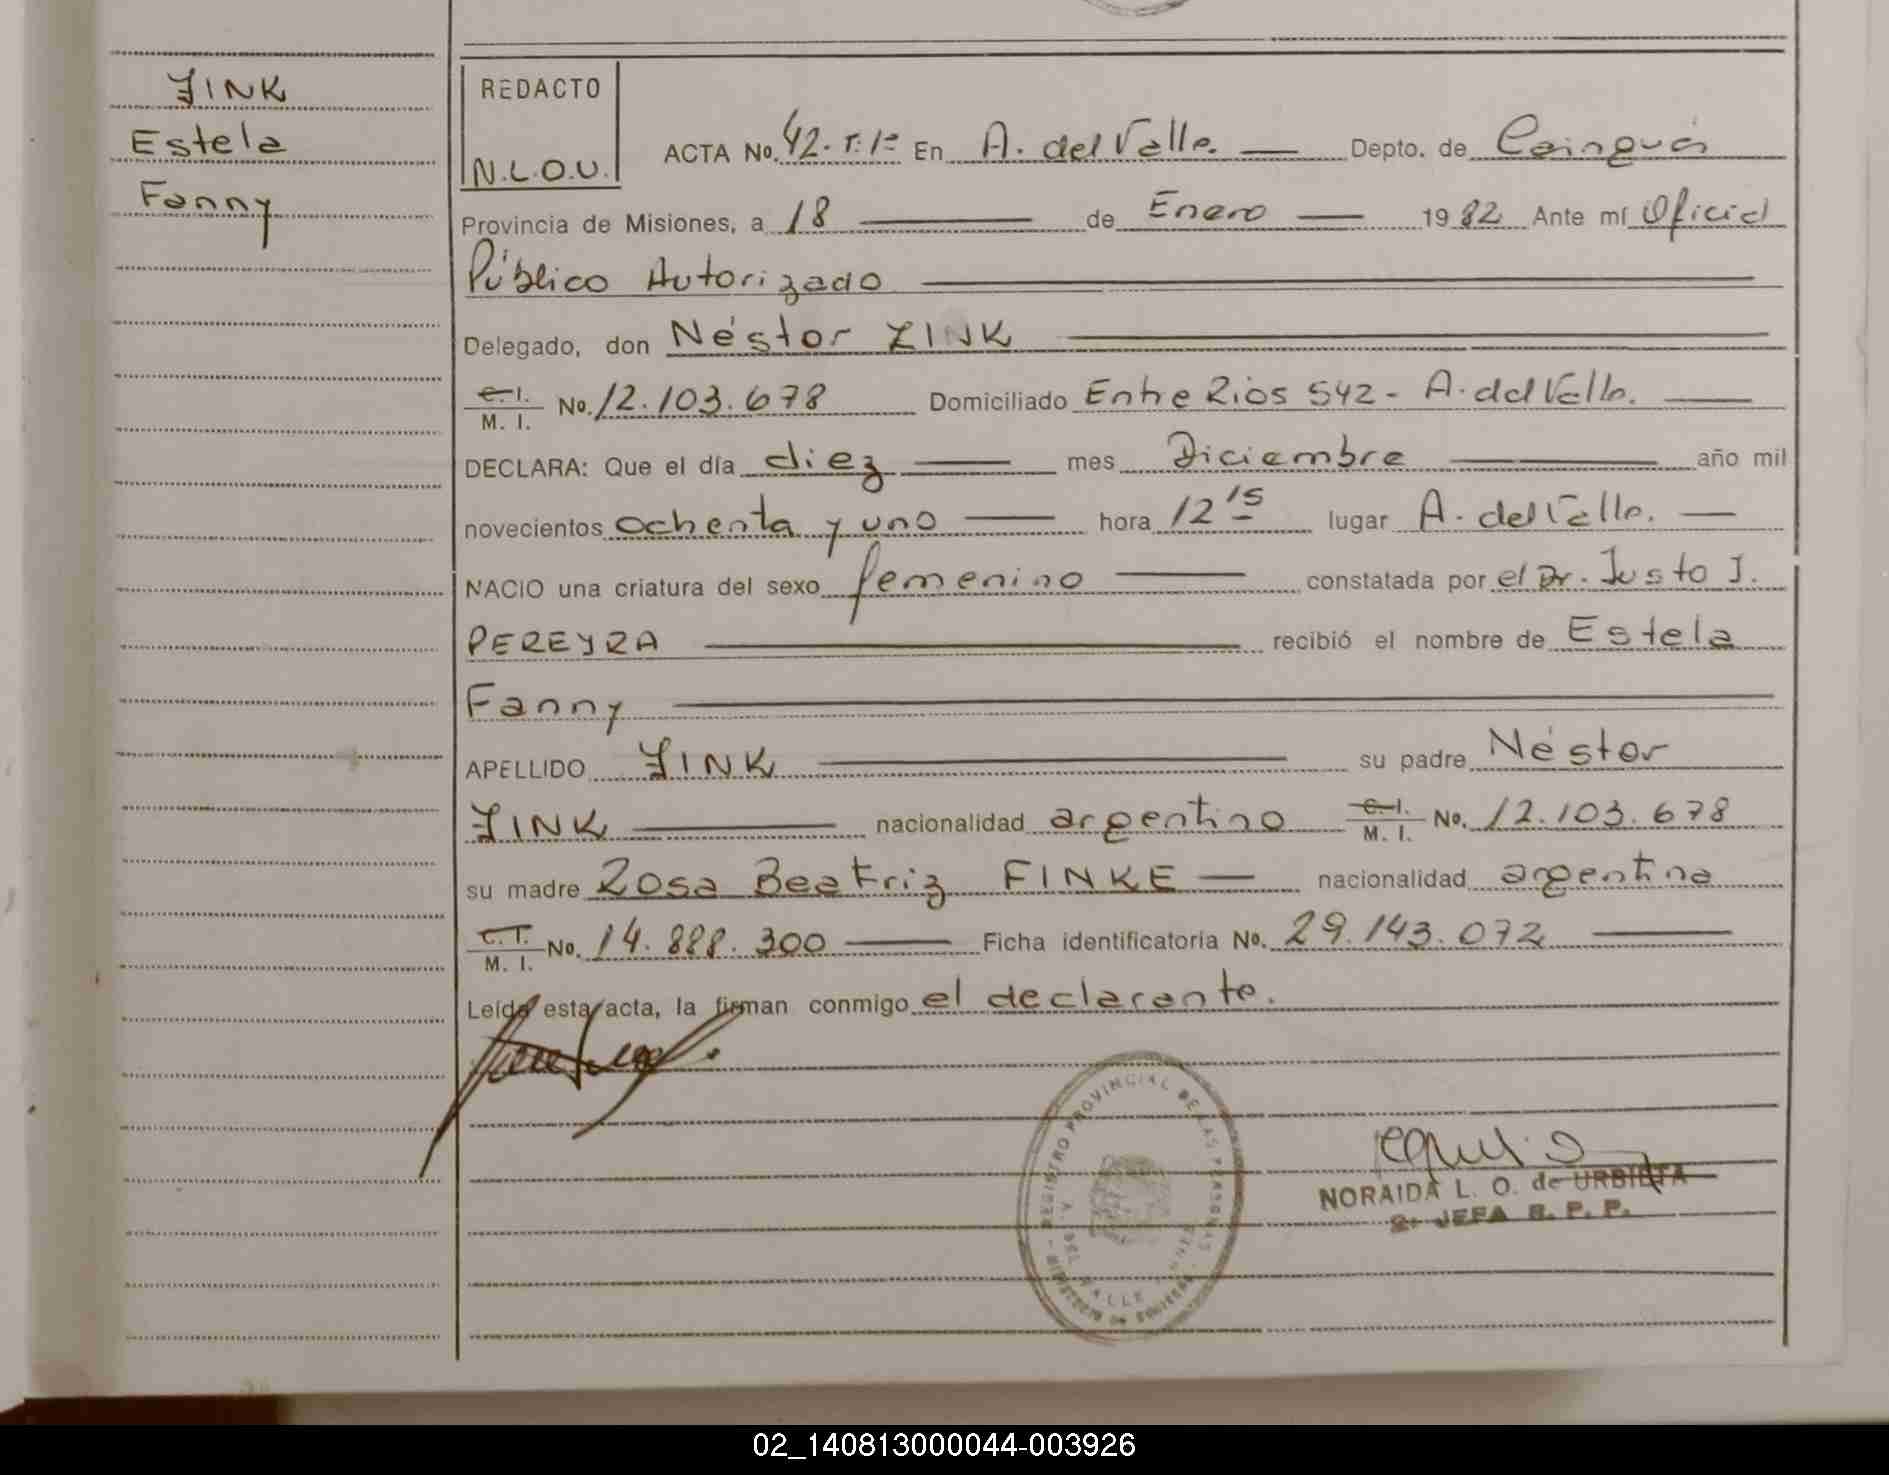 ZINK
Estela
Fanny
REDACTO
N.L.O.U.
ACTA No. 42. T. 1º En A. del Valle. Depto. de Cainguás
Provincia de Misiones, a 18 de Enero 1982 Ante mí Oficial
Público Autorizado
Delegado, don Néstor ZINK
C. I. M. I. No. 12.103.678 Domiciliado Entre Rios 542 - A. del Valle.
DECLARA: Que el día diez mes Diciembre año mil
novecientos ochenta y uno hora 12 15 lugar A. del Valle.
NACIO una criatura del sexo femenino constatada por el Dr. Justo J.
PEREYRA recibió el nombre de Estela
Fanny
APELLIDO ZINK su padre Néstor
ZINK nacionalidad argentino C. I. M. I. No. 12.103.678
su madre Rosa Beatriz FINKE nacionalidad argentina
C. I. M. I. No. 14.888.300 Ficha identificatoria No. 29.143.072
Leída esta acta, la firman conmigo el declarante.
REGISTRO PROVINCIAL DE LAS PERSONAS
A. DEL VALLE
MISIONES
NORAIDA L. O. de URBIETA
2º JEFA R. P. P.
02_140813000044-003926